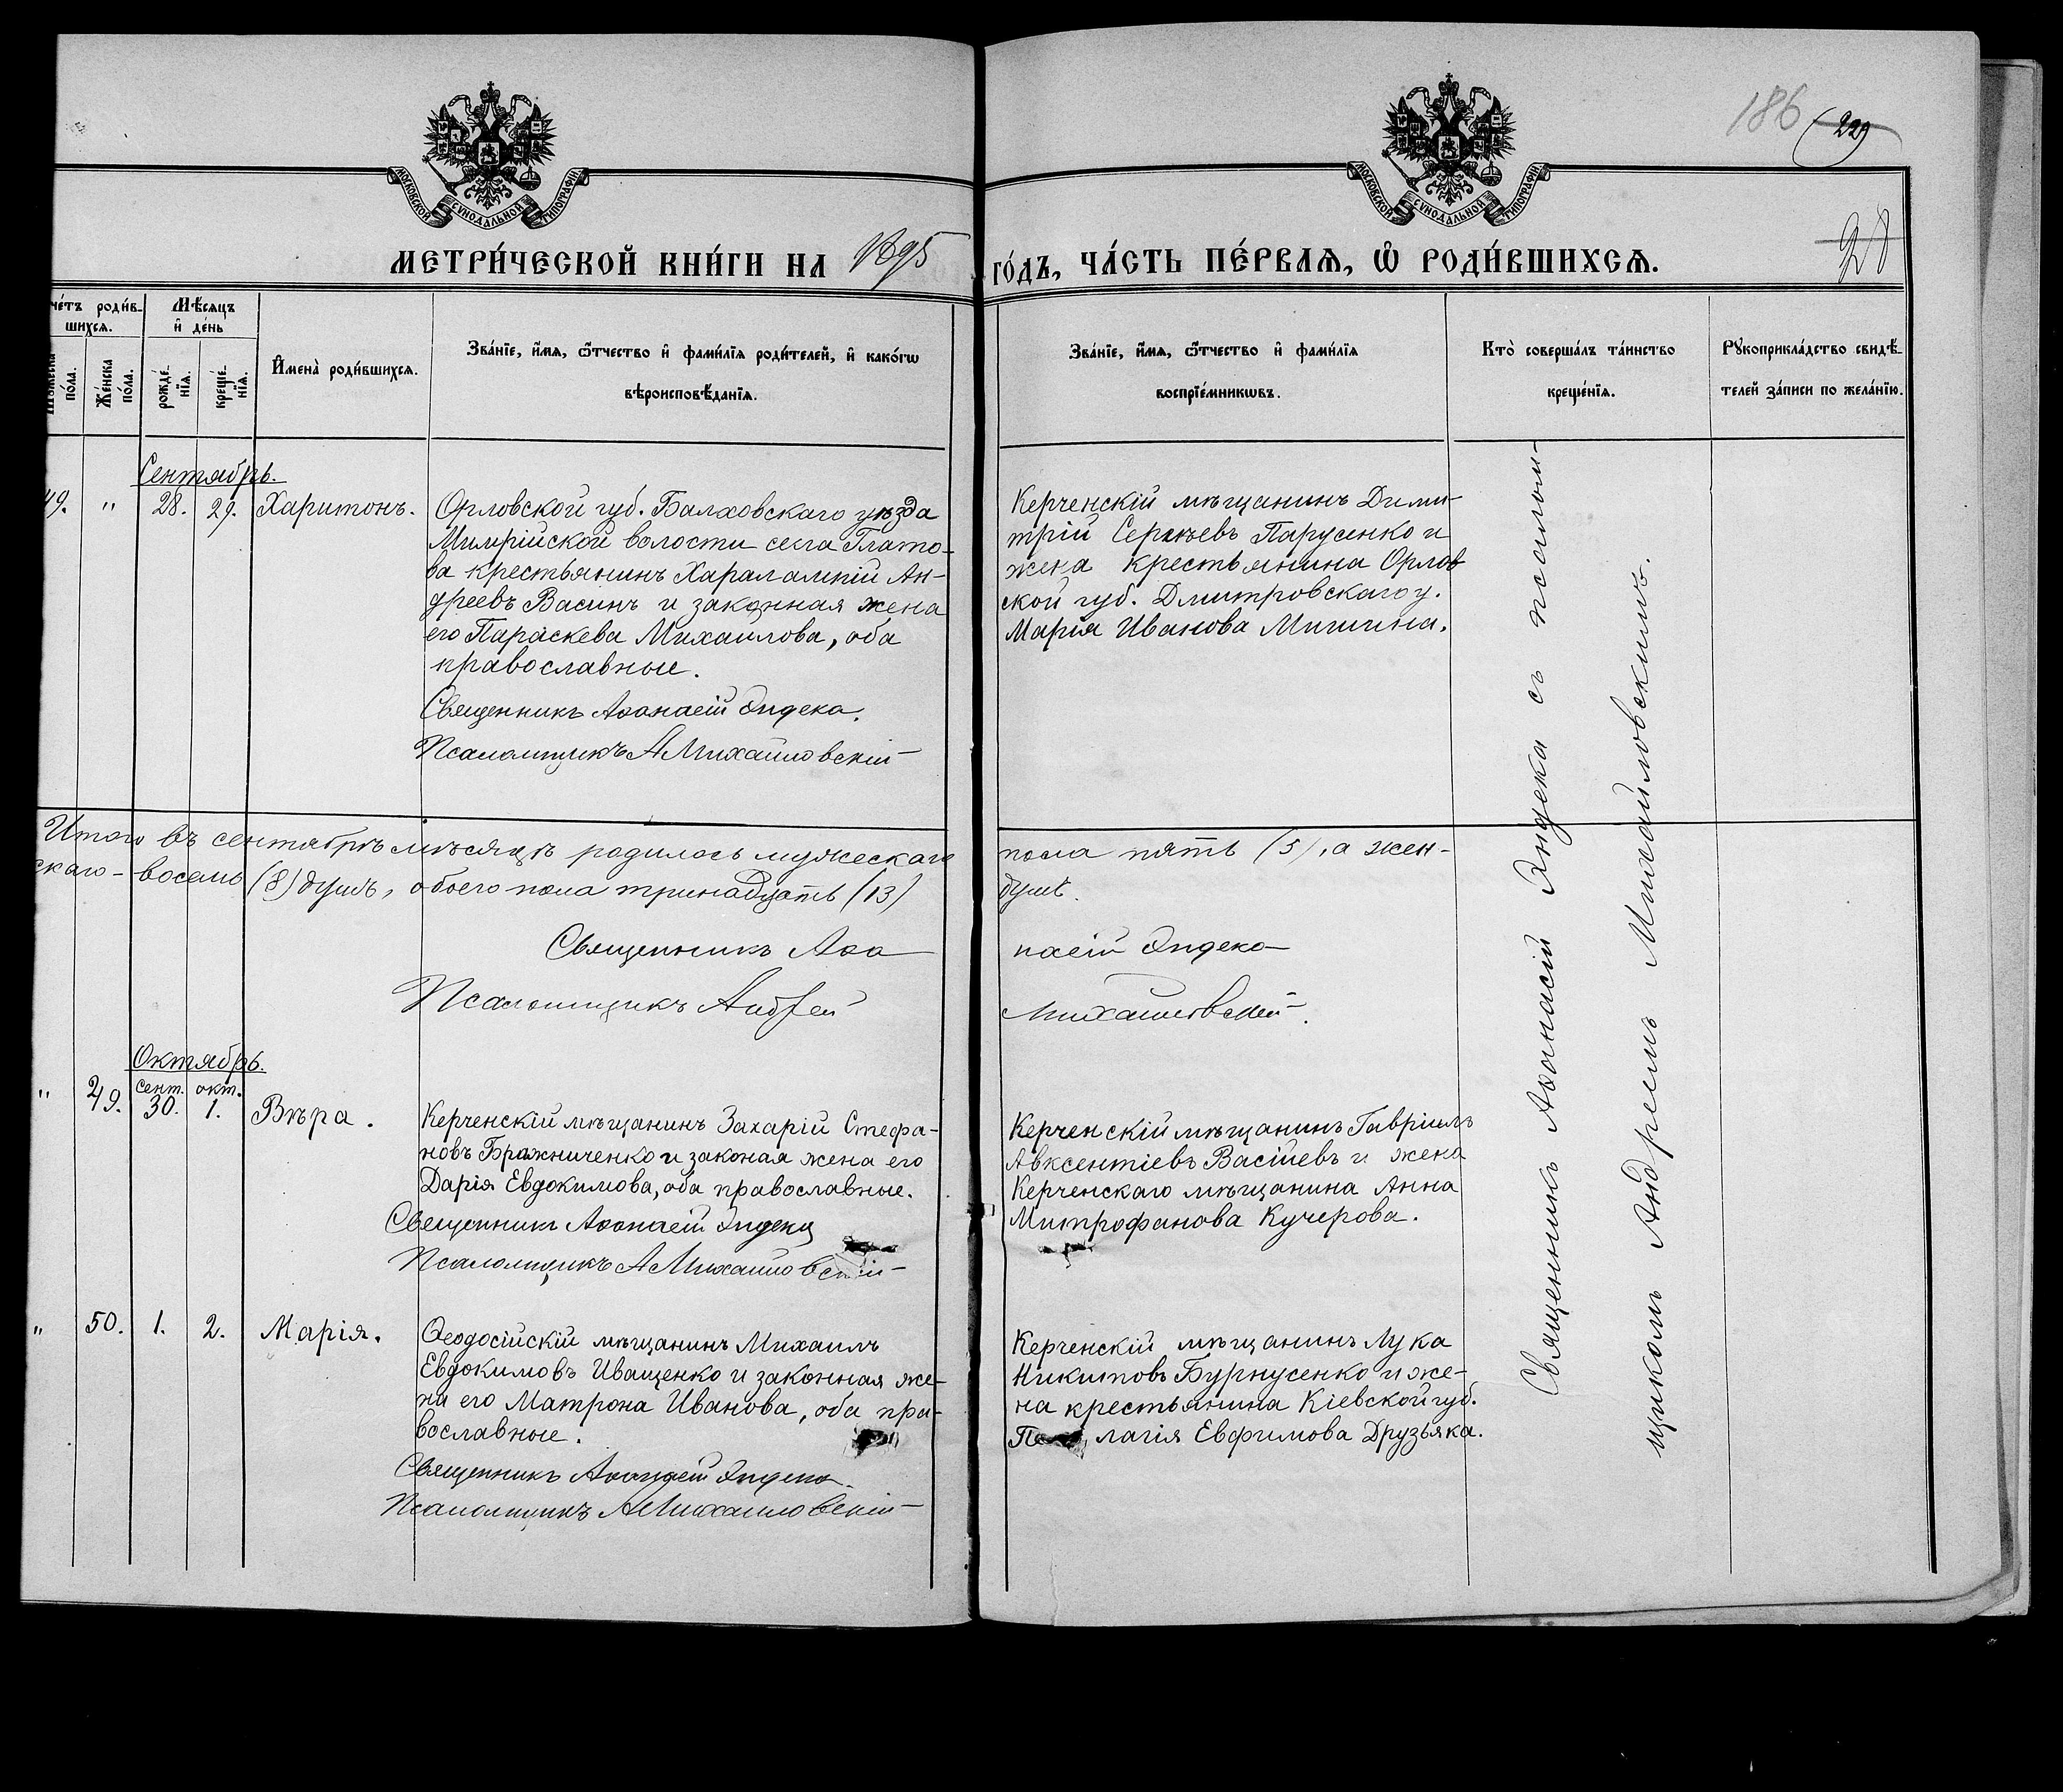 186 229
МОСКОВСКОЙ СѴНОДАЛЬНОЙ ТИПОГРАФІИ
МОСКОВСКОЙ СѴНОДАЛЬНОЙ ТИПОГРАФІИ
МЕТРИ́ЧЕСКОЙ КНИ́ГИ НА 1895 ГО́ДЪ, ЧА́СТЬ ПЕ́РВАѦ, Ѡ҆ РОДИ́ВШИХСѦ.
28
че́тъ роди́в-
шихсѧ.
Мѣ́сѧцъ
и҆ де́нь
пóла.
Же́нска
пóла.
рожде́-
нїѧ.
креще́-
нїѧ.
И҆менà роди́вшихсѧ.
Зва́нїе, и҆́мѧ, ѻ҆́тчество и҆ фами́лїѧ роди́телей, и҆ како́гѡ
вѣроисповѣ́данїѧ.
Зва́нїе, и҆́мѧ, ѻ҆́тчество и҆ фами́лїѧ
воспрїе́мникѡвъ.
Кто̀ соверша́лъ та́инство
креще́нїѧ.
Рꙋкоприкла́дство свидѣ́-
телей за́писи по жела́нїю.
Сентябрь.
49. " 28. 29. Харитонъ.
Орловской губ. Балховскаго уѣзда
волости села Глато-
ва крестьянинъ Харалампій Ан-
дреевъ Васинъ и законная жена
его Параскева Михаилова, оба
православные.
Священникъ Аѳанасій Яндека.
Псаломщикъ А Михайловскій
Керченскій мѣщанинъ Дими-
трій Сергѣевъ Парусенко и
жена крестьянина Орлов
ской губ. Дмитровскаго у.
Марія Иванова Мишина.
Итого въ сентябрѣ мѣсяцѣ родилось мужескаго пола пять (5), а жен-
скаго - восемь (8) душъ, обоего пола тринадцать (13) душъ.
Священникъ Аѳанасій Яндека
Псаломщикъ Андрей Михайловскій.
Октябрь.
сент. окт.
" 49. 30. 1. Вѣра.
Керченскій мѣщанинъ Захарій Стефа-
новъ Бражниченко и законая жена его
Дарія Евдокимова, оба православные.
Священникъ Аѳанасій Яндека
Псаломщикъ А Михайловскій
Керченскій мѣщанинъ Гавріилъ
Авксентіевъ Васійевъ и жена
Керченскаго мѣщанина Анна
Митрофанова Кучерова.
" 50. 1. 2. Марія.
Ѳеодосійскій мѣщанинъ Михаилъ
Евдокимовъ Иващенко и законная же-
на его Матрона Иванова, оба пра-
вославные.
Священникъ Аѳанасій Яндека
Псаломщикъ А Михайловскій
Керченскій мѣщанинъ Лука
Никитовъ Бурнусенко и же-
на крестьянина Кіевской губ.
Пе лагія Евфимова Друзьяка.
Священникъ Аѳанасій Яндека съ псалом-
щикомъ Андреемъ Михайловскимъ.